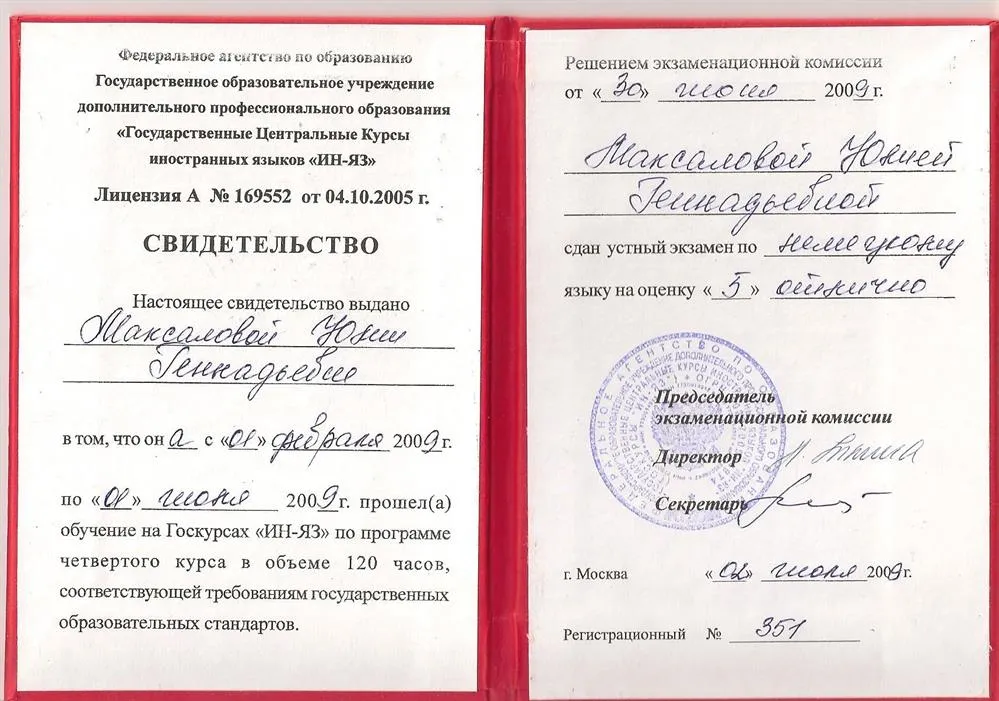 Федеральное агентство по образованию
Государственное образовательное учреждение
дополнительного профессионального образования
«Государственные Центральные Курсы
иностранных языков «ИН-ЯЗ»
Лицензия А № 169552 от 04.10.2005 г.
СВИДЕТЕЛЬСТВО
Настоящее свидетельство выдано
Максаловой Юлии
Геннадьевне
в том, что он а с «01» февраля 2009г.
по «01» июня 2009г. прошел(а)
обучение на Госкурсах «ИН-ЯЗ» по программе
четвертого курса в объеме 120 часов,
соответствующей требованиям государственных
образовательных стандартов.
Решением экзаменационной комиссии
от «30» июня 2009г.
Максаловой Юлией
Геннадьевной
сдан устный экзамен по немецкому
языку на оценку «5» отлично
Председатель
экзаменационной комиссии
Директор
Секретарь
г. Москва «02» июля 2009г.
Регистрационный № 351